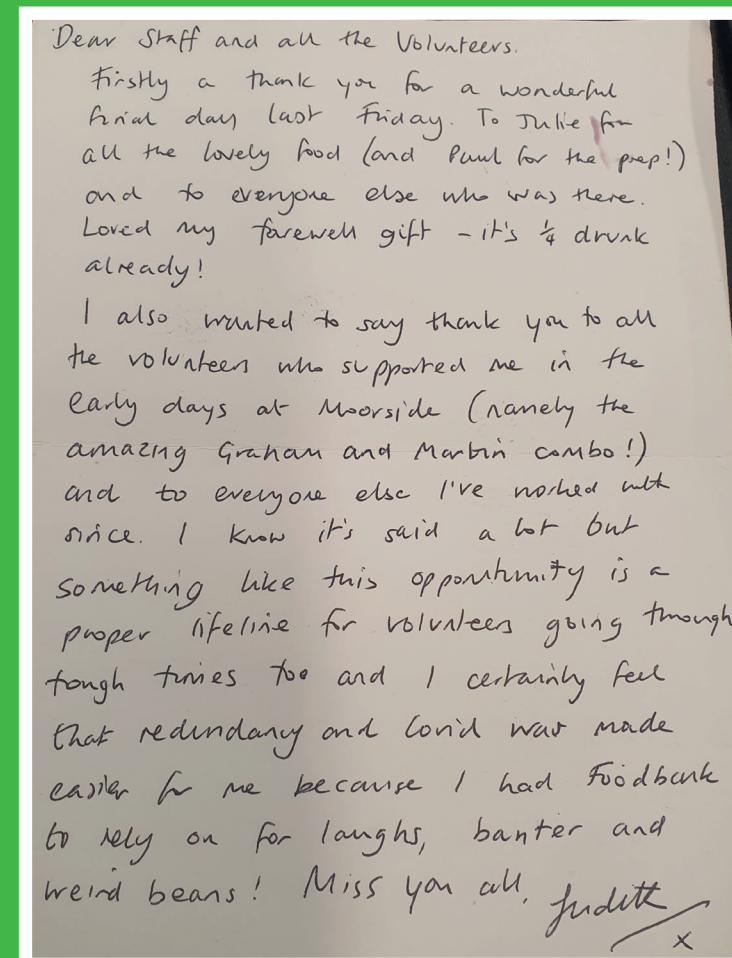 Dear Staff and all the Volunteers.
Firstly a thank you for a wonderful
final day last Friday. To Julie for
all the lovely food (and Paul for the prep!)
and to everyone else who was there.
Loved my farewell gift - it's ¼ drunk
already!
I also wanted to say thank you to all
the volunteers who supported me in the
early days at Moorside (namely the
amazing Graham and Martin combo!)
and to everyone else I've worked with
since. I know it's said a lot but
something like this opportunity is a
proper lifeline for volunteers going through
tough times too and I certainly feel
that redundancy and Covid was made
easier for me because I had Foodbank
to rely on for laughs, banter and
weird beans! Miss you all, Judith
x